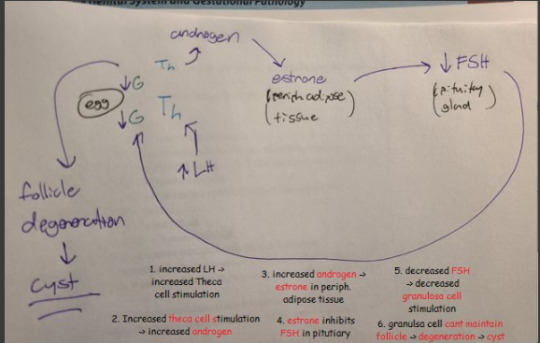 Genital System and Gestational Pathology
androgen
Th
↓G
egg
↓G
Th
↑LH
estrone
(periph adipose
tissue)
↓FSH
(pituitary
gland)
follicle
degeneration
↓
cyst
1. increased LH →
increased Theca
cell stimulation
2. Increased theca cell stimulation
→ increased androgen
3. increased androgen →
estrone in periph.
adipose tissue
4. estrone inhibits
FSH in pituitary
5. decreased FSH
→ decreased
granulosa cell
stimulation
6. granulsa cell cant maintain
follicle → degeneration → cyst